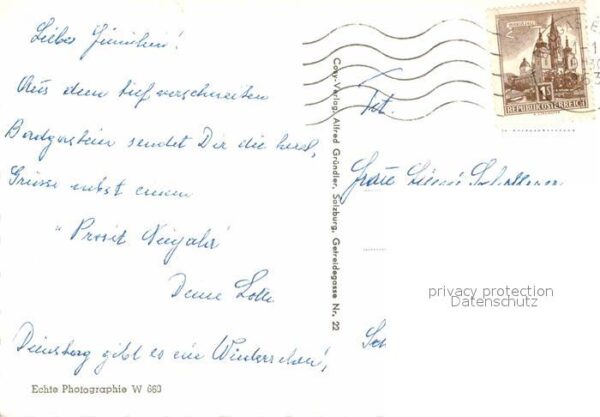 Liebes
Aus dem tief verschneiten
Badgastein sendet Dir die herzl.
Grüsse nebst einem
"Prosit Neujahr"
Deine Lotte
Dienstag gibt es eine
Echte Photographie W 660
Cosy-Verlag, Alfred Gründler, Salzburg, Getreidegasse Nr. 22
MARIAZELL
1 S
REPUBLIK ÖSTERREICH
Frau
privacy protection
Datenschutz